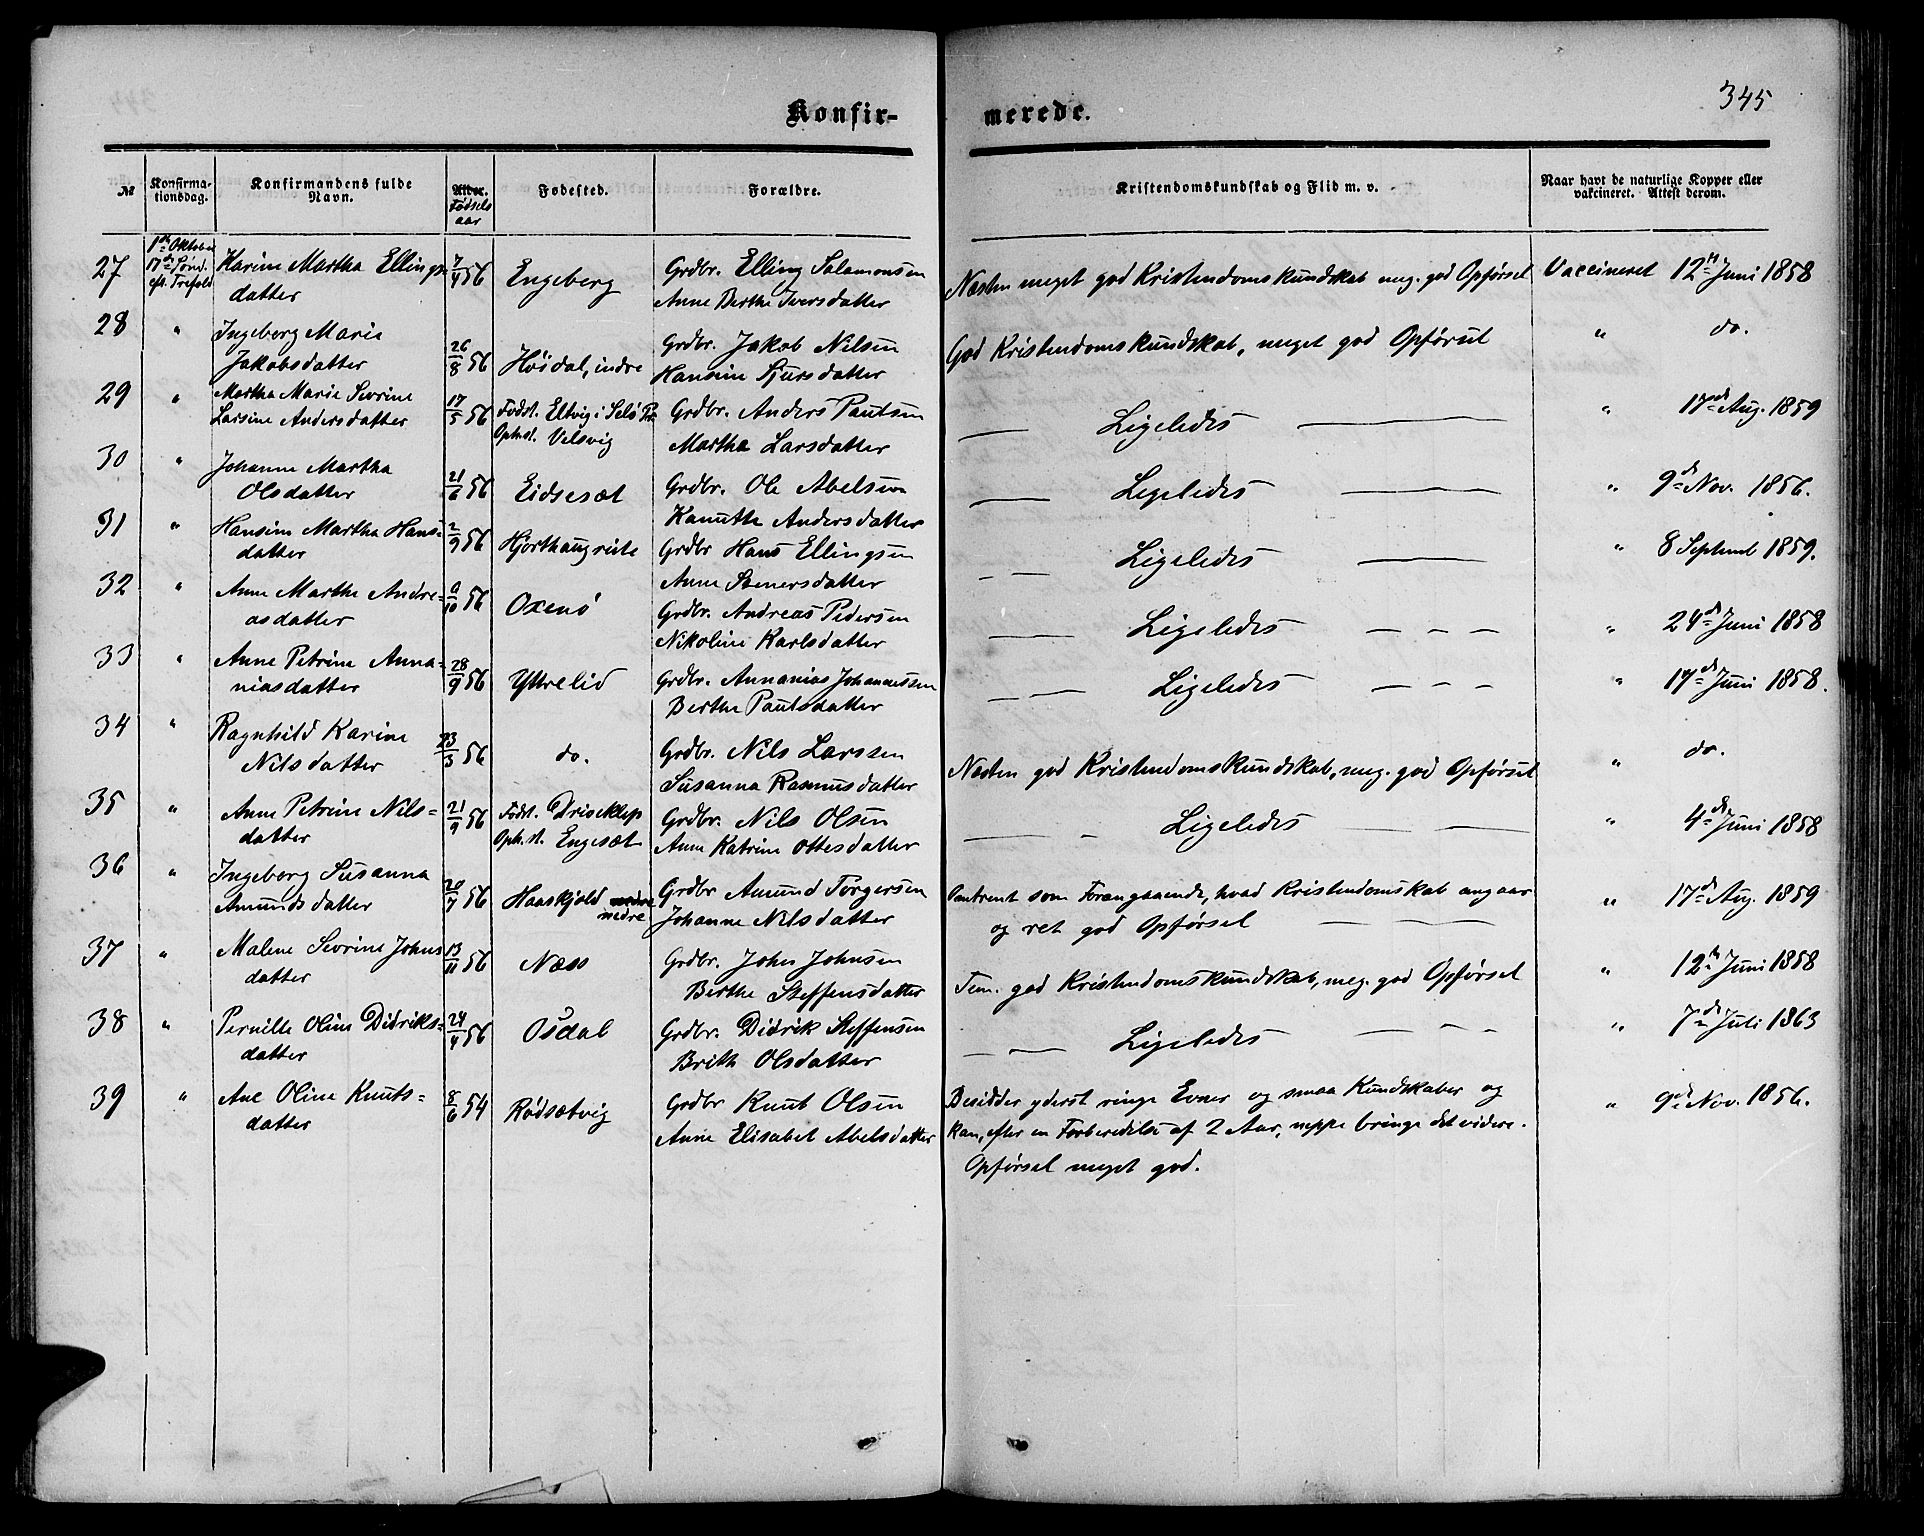 345
Konfirmerede.
№ Konfirmationsdag. Konfirmandens fulde Navn. Alder. Fødselsaar Fødested. Forældre. Kristendomskundskab og Flid m. v. Naar havt de naturlige Kopper eller vakcineret. Attest derom.
27 1ste Oktober 17de Sønd. eft. Trefold Karine Martha Ellings- 7/4 56 Engeberg Grdbr. Elling Salamonsen Næsten meget god Kristendomskundskab meg. god Opførsel Vaccineret 12te Juni 1858
datter Anne Berthe Iversdatter
28 " Ingeborg Marie 26/8 56 Høidal, indre Grdbr. Jakob Nilsen God Kristendomskundskab, meget god Opførsel " do.
Jakobsdatter Hansine Sjursdatter
29 " Martha Marie Severine 17/5 56 Fødst. Eltvig i Selø Pr. Grdbr. Anders Paulsen — Ligeledes — " 17de Aug. 1859
Larsine Andersdatter Ophst. Velsvig Martha Larsdatter
30 " Johanne Martha 21/6 56 Eidseset Grdbr. Ole Abelsen — Ligeledes — " 9de Nov. 1856.
Olsdatter Kanutte Andersdatter
31 " Hansine Martha Hans- 2/9 56 Hjorthaugreite Grdbr Hans Ellingsen — Ligeledes — " 8 Septemb 1859.
datter Anne Stenersdatter
32 " Anne Marthe Andre- 9/10 56 Oxenø Grdbr. Andreas Pedersen — Ligeledes — " 24de Juni 1858
asdatter Nikoline Karlsdatter
33 " Anne Petrine Anna- 28/9 56 Yttrelid Grdbr. Annanias Johannessen — Ligeledes — " 17de Juni 1858.
niasdatter Berthe Paulsdatter
34 " Ragnhild Karine 23/3 56 do. Grdbr. Nils Larssen Næsten god Kristendomskundskab, meg. god Opførsel " do.
Nilsdatter Susanna Rasmusdatter
35 " Anne Petrine Nils- 21/9 56 Fødst. Driseklep Grdbr. Nils Olsen — Ligeledes — " 4de Juni 1858
datter Oph.st. Engesæt Anne Katrine Ottesdatter
36 " Ingeborg Susanna 20/7 56 Haaskjold nedre Grdbr Amund Torgersen Omtrent som Forangaaende, hvad Kristendomskab angaar " 17de Aug. 1859
Amundsdatter Johanne Nilsdatter og ret god Opførsel
37 " Malene Sevrine Johns 13/11 56 Næss Grdbr. John Johnsen Tem. god Kristendomskundskab, meg. god Opførsel " 12te Juni 1858
datter Berthe Steffensdatter
38 " Pernille Oline Didriks- 24/4 56 Osdal Grdbr. Didrik Steffensen — Ligeledes — " 7de Juli 1863
datter Brith Olsdatter
39 " Ane Oline Knuts- 8/6 54 Rødsætvig Grdbr Knut Olsen Besidder yderst ringe Evner og smaa Kundskaber og " 9de Nov. 1856.
datter Anne Elisabet Abelsdatter kan, efter en Forberedelse af 2 Aar, neppe bringe det videre.
Opførsel meget god.